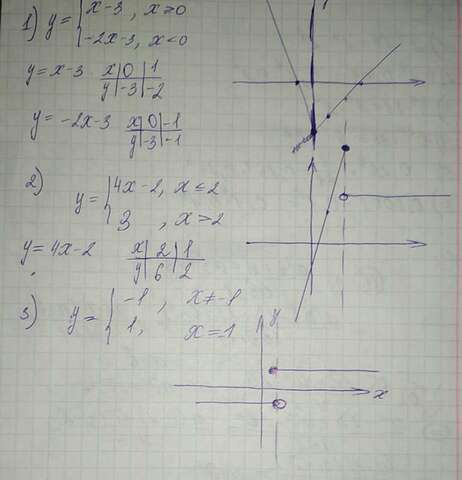 1) y = { x-3 , x ≥ 0
-2x-3, x < 0
y = x-3 x | 0 | 1
y | -3 | -2
y = -2x-3 x | 0 | -1
y | -3 | -1
2)
y = { 4x-2, x ≤ 2
3 , x > 2
y = 4x-2 x | 2 | 1
y | 6 | 2
3) y = { -1 , x ≠ -1
1, x = -1
y
x